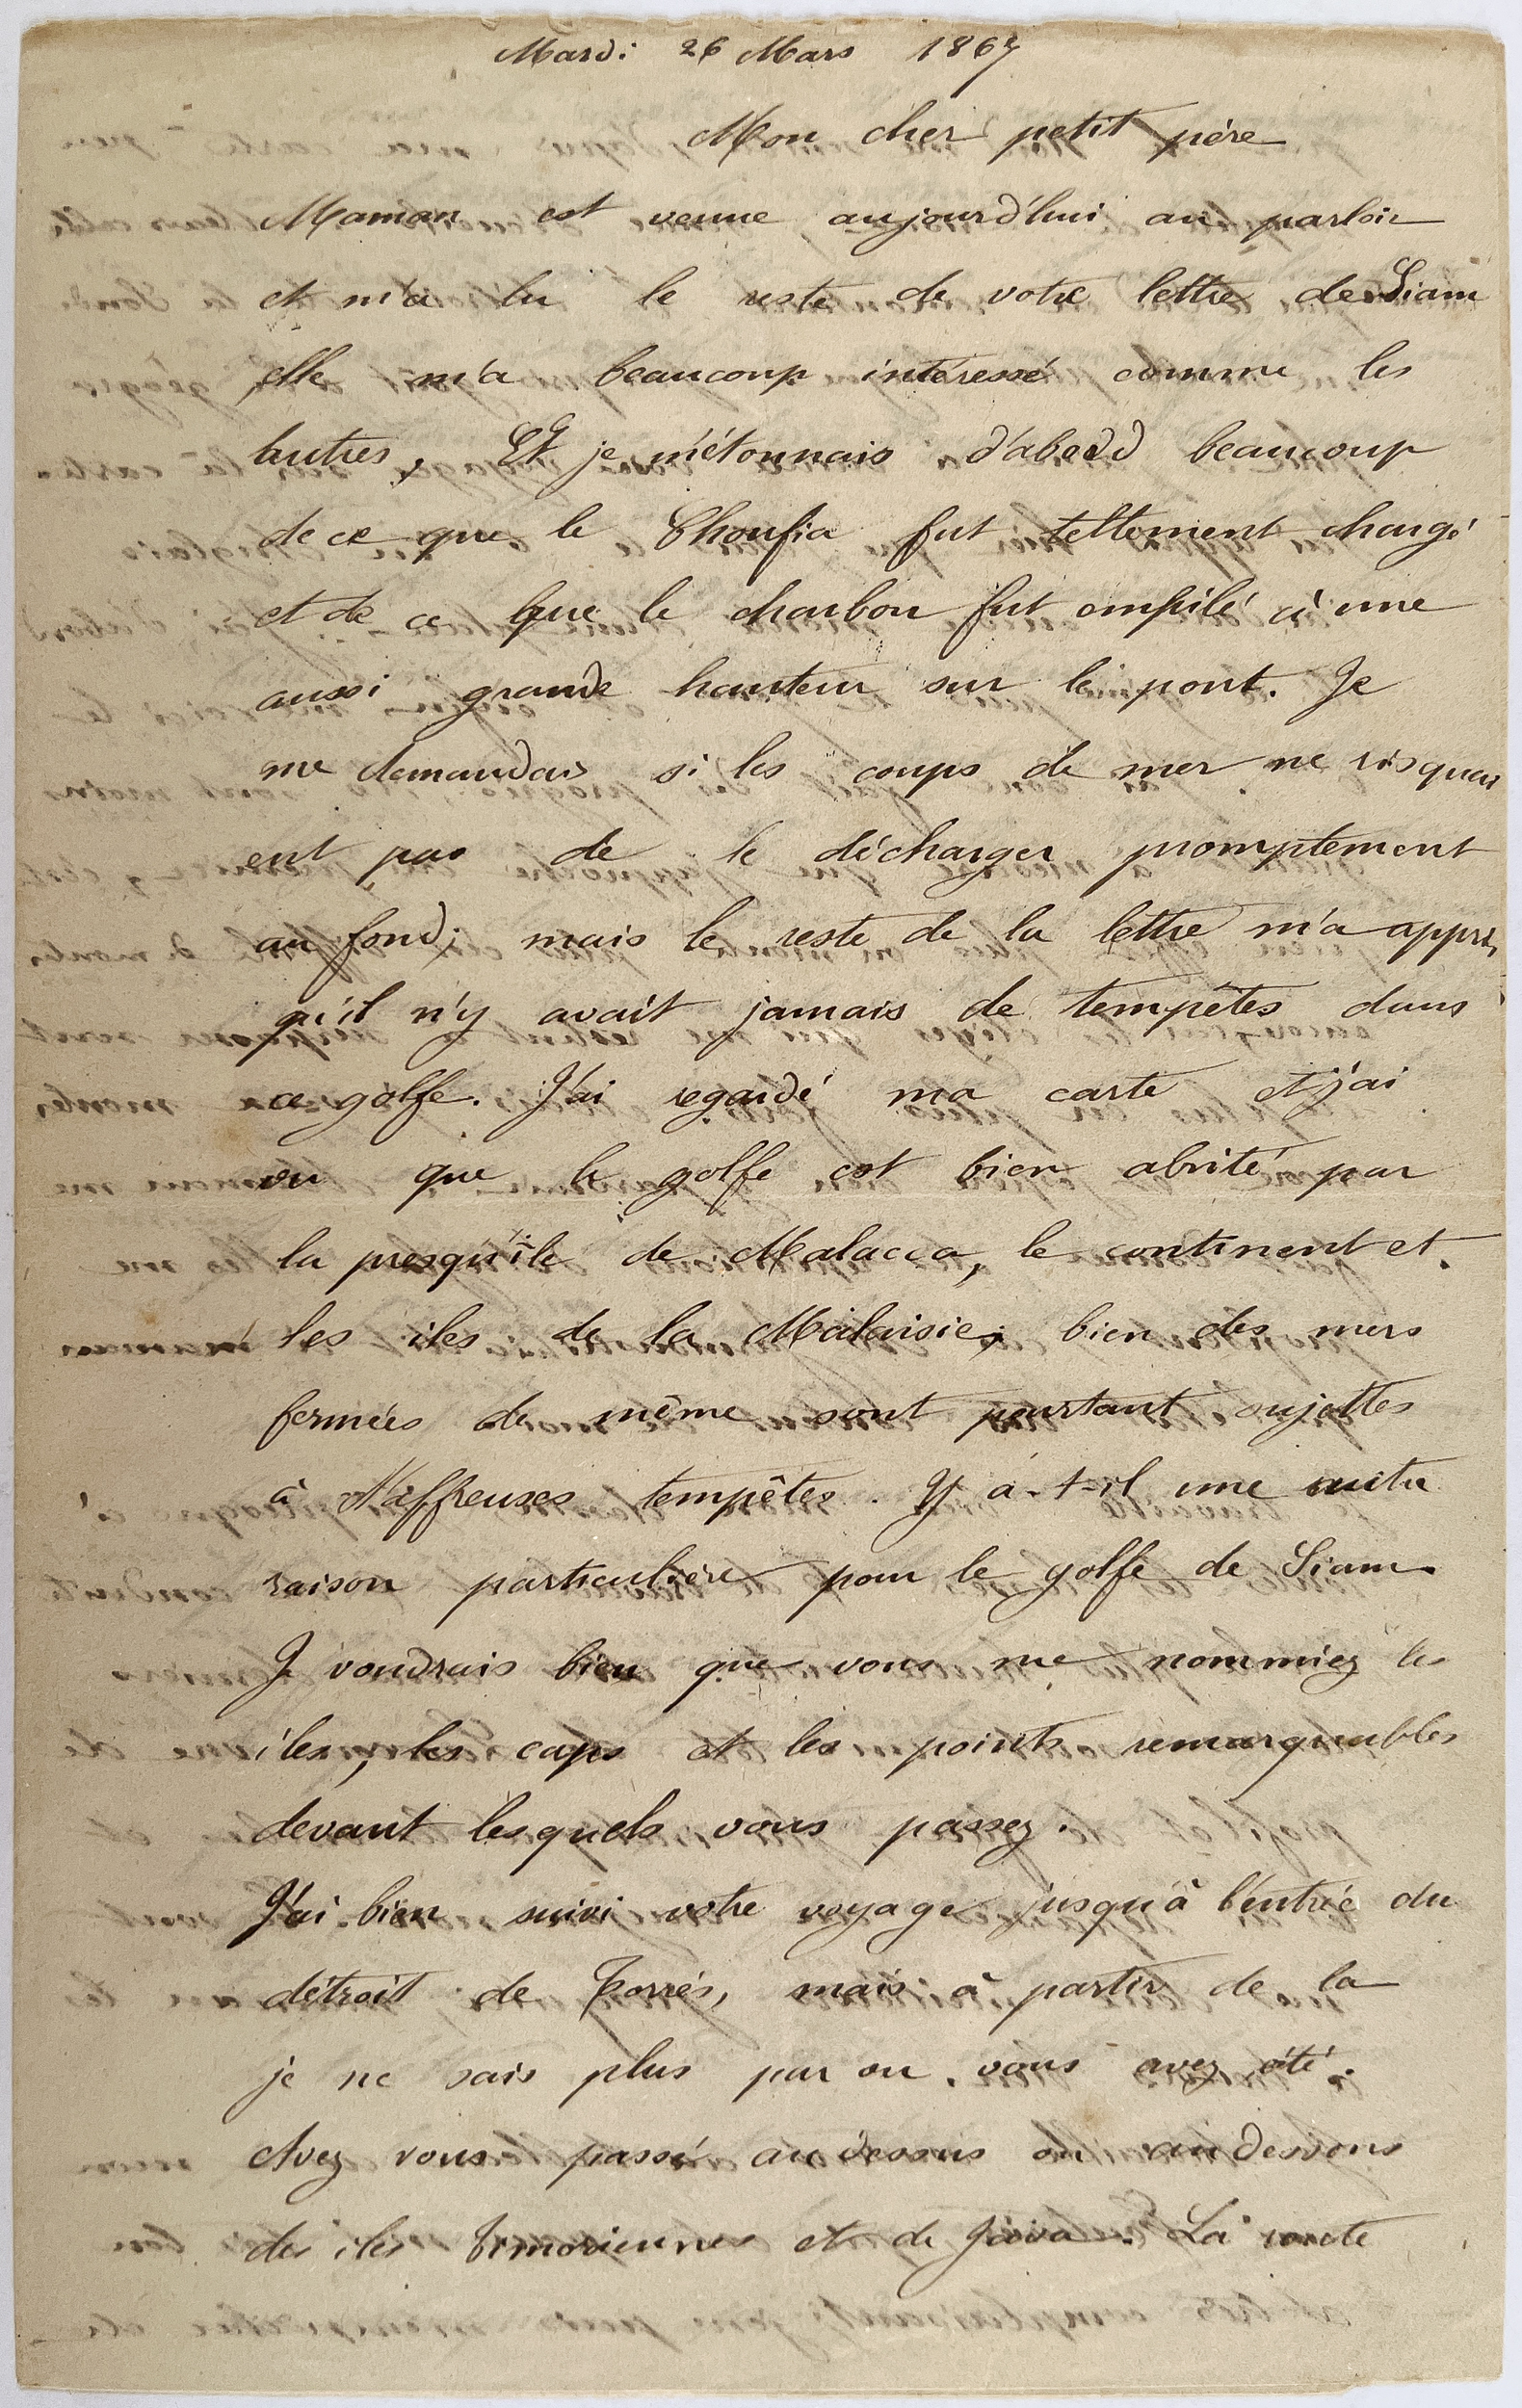 Mardi 26 Mars 1867
Mon cher petit père
Maman est venue aujourd'hui au parloir
et m'a lu le reste de votre lettre de Siam
elle m'a beaucoup intéressé comme les
autres, Et je m'étonnais d'abord beaucoup
de ce que le fut tellement chargé
et de ce que le charbon fut empilé à une
aussi grande hauteur sur le pont. Je
me demandais si les coups de mer ne risquai
ent pas de le décharger promptement
au fond; mais le reste de la lettre m'a appris
qu'il n'y avait jamais de tempêtes dans
ce golfe. J'ai regardé ma carte et j'ai
vu que le golfe est bien abrité par
la presqu'île de Malacca, le continent et
les iles de la Malaisie; bien des mers
fermées de même sont pourtant sujettes
à d'affreuses tempêtes. Y a-t-il une autre
raison particulière pour le golfe de Siam
Je voudrais bien que vous me nommiez les
îles, les caps et les points remarquables
devant lesquels vous passez.
J'ai bien suivi votre voyage jusqu'à l'entrée du
détroit de Torrés, mais à partir de la
je ne sais plus par ou vous avez été.
Avez vous passé au dessus ou au dessous
des iles Timoriennes et de Java. La route